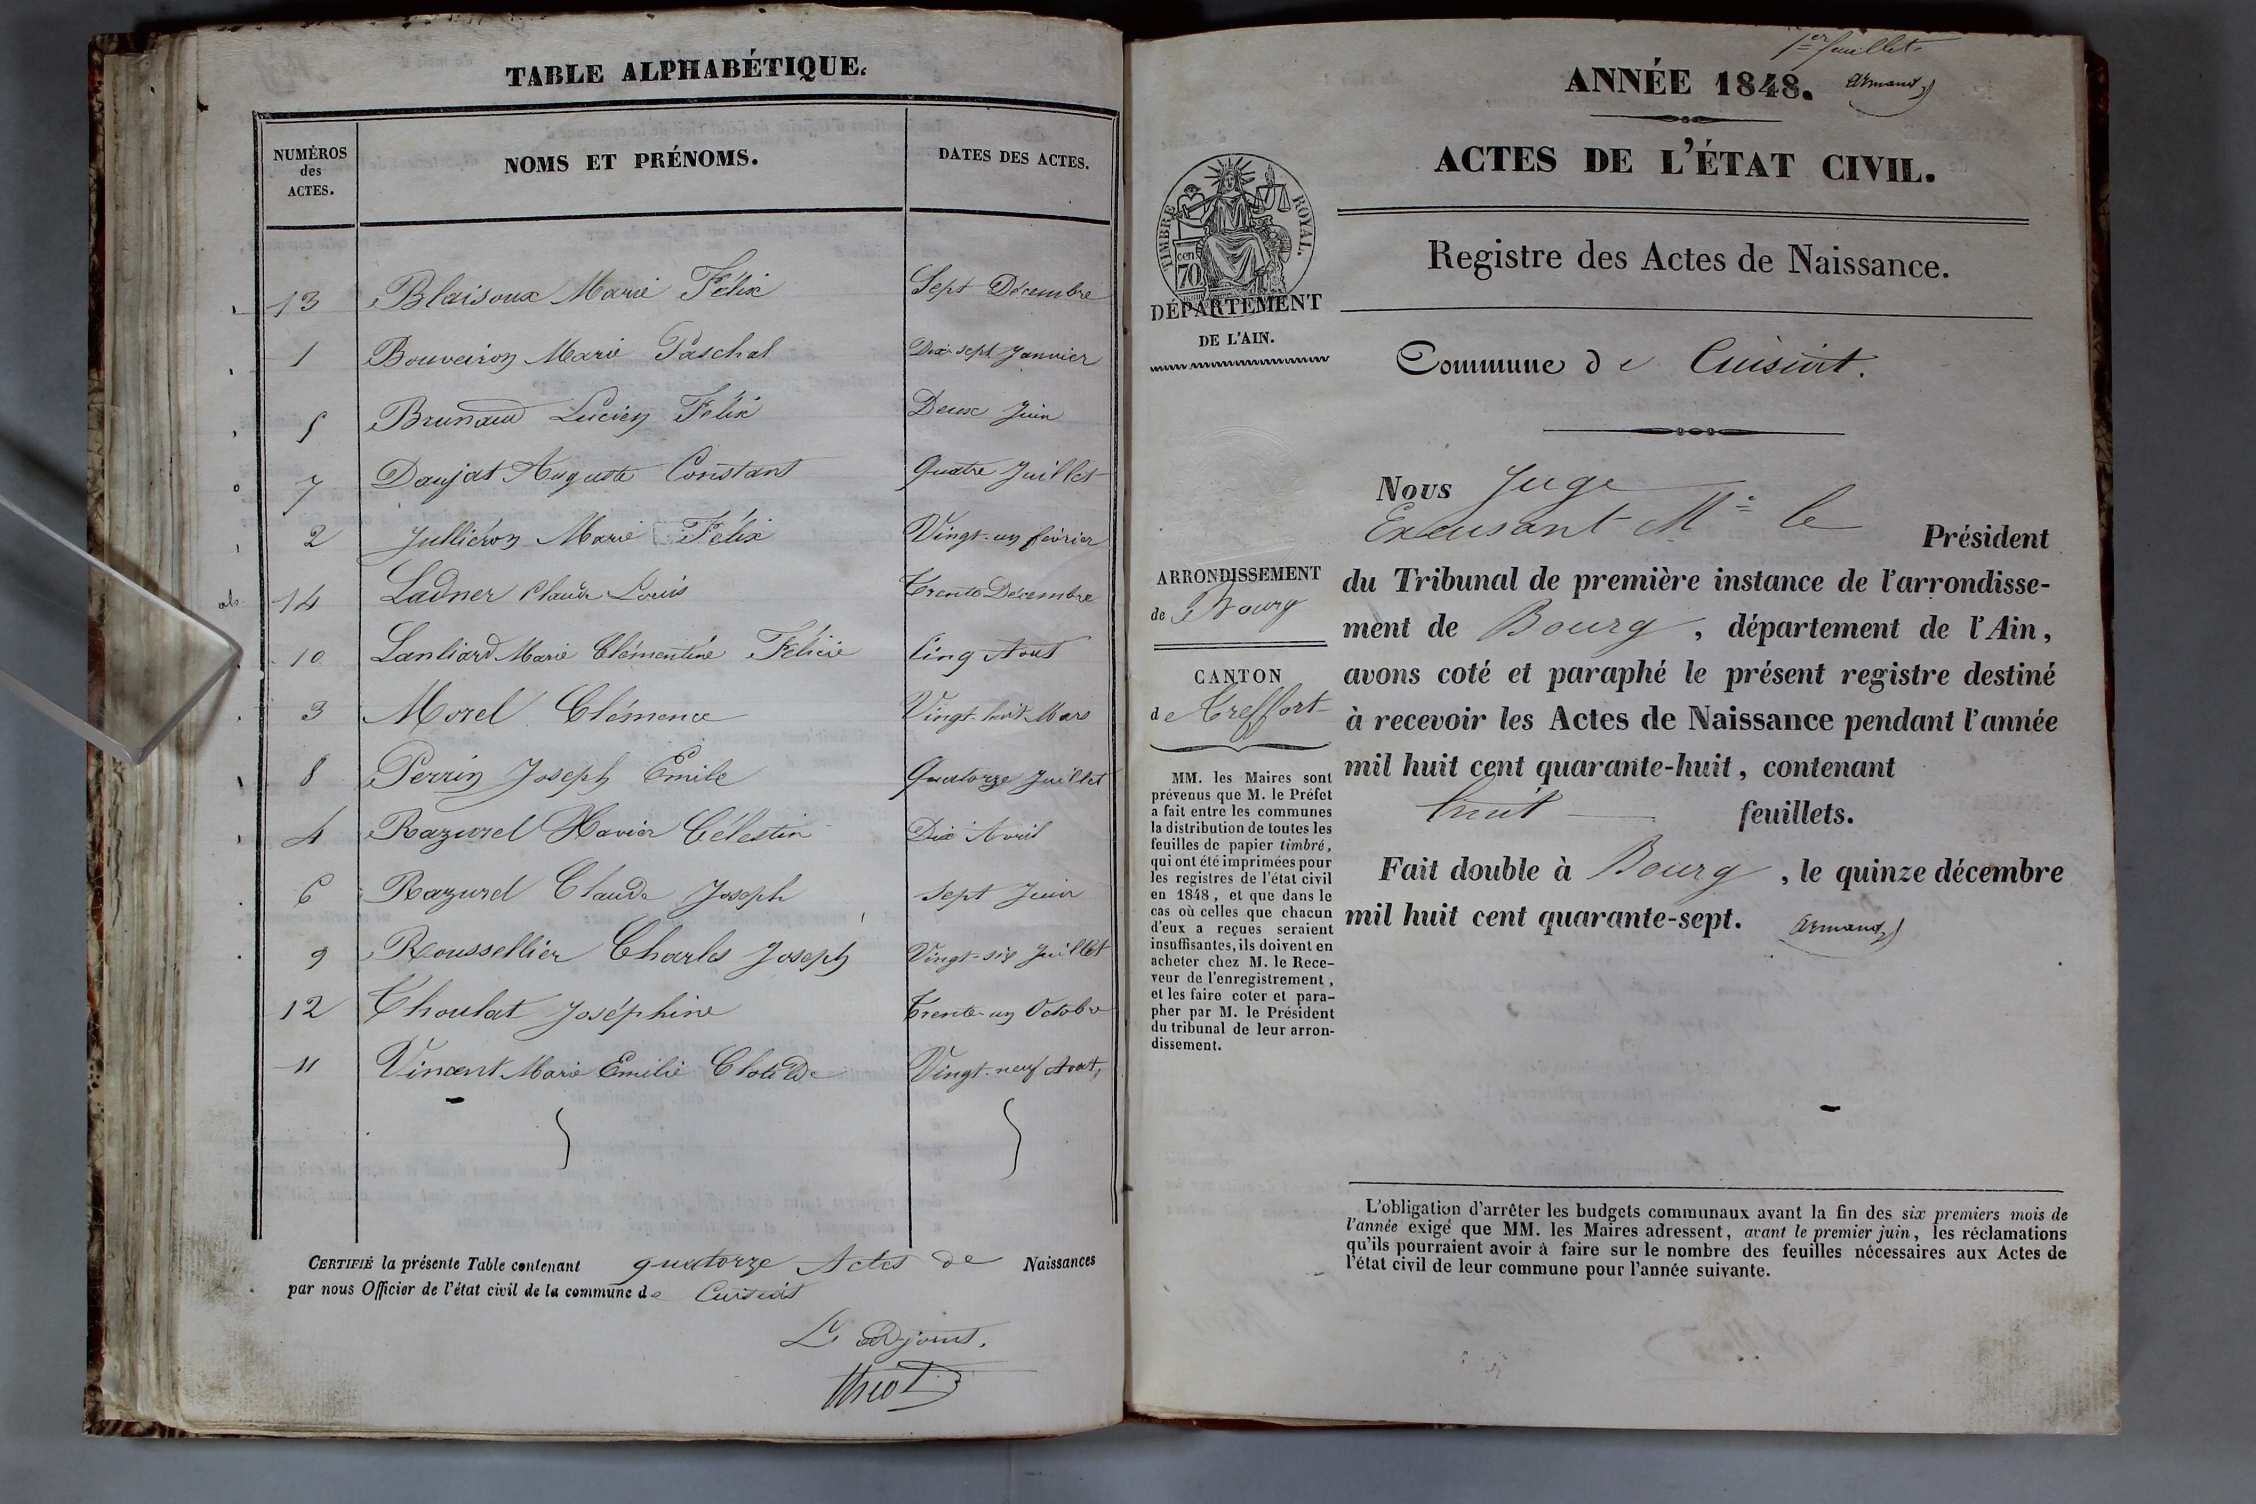 TABLE ALPHABÉTIQUE.
NUMÉROS
des
ACTES.
NOMS ET PRÉNOMS.
DATES DES ACTES.
13 Blaisoux Marie Félix Sept Décembre
1 Bouveiron Marie Paschal Dix-sept Janvier
5 Brunaud Lucien Félix Deux Juin
7 Daujat Auguste Constant Quatre Juillet
2 Jullieron Marie Félix Vingt-un février
14 Ladner Claude Louis Trente Décembre
10 Lanliard Marie Clémentine Félicie Cinq Aout
3 Morel Clémence Vingt-huit Mars
8 Perrin Joseph Emile Quatorze Juillet
4 Razurel Xavier Célestin Dix Avril
6 Razurel Claude Joseph Sept Juin
9 Roussellier Charles Joseph Vingt-six Juillet
12 Thoulat Joséphine Trente-un Octobre
11 Vincent Marie Emilie Clotilde Vingt-neuf Aout,
CERTIFIÉ la présente Table contenant quatorze Actes de Naissances
par nous Officier de l'état civil de la commune de Cuisiat
L'adjoint.
1er feuillet
Armand
ANNÉE 1848.
ACTES DE L'ÉTAT CIVIL.
TIMBRE ROYAL.
cen 70
DÉPARTEMENT
DE L'AIN.
Registre des Actes de Naissance.
Commune de Cuisiat.
ARRONDISSEMENT
de Bourg
CANTON
de Treffort
MM. les Maires sont
prévenus que M. le Préfet
a fait entre les communes
la distribution de toutes les
feuilles de papier timbré,
qui ont été imprimées pour
les registres de l'état civil
en 1848, et que dans le
cas où celles que chacun
d'eux a reçues seraient
insuffisantes, ils doivent en
acheter chez M. le Rece-
veur de l'enregistrement,
et les faire coter et para-
pher par M. le Président
du tribunal de leur arron-
dissement.
Nous Juge
Excusant Mr le Président
du Tribunal de première instance de l'arrondisse-
ment de Bourg, département de l'Ain,
avons coté et paraphé le présent registre destiné
à recevoir les Actes de Naissance pendant l'année
mil huit cent quarante-huit, contenant
huit feuillets.
Fait double à Bourg, le quinze décembre
mil huit cent quarante-sept. Armand
L'obligation d'arrêter les budgets communaux avant la fin des six premiers mois de
l'année exige que MM. les Maires adressent, avant le premier juin, les réclamations
qu'ils pourraient avoir à faire sur le nombre des feuilles nécessaires aux Actes de
l'état civil de leur commune pour l'année suivante.